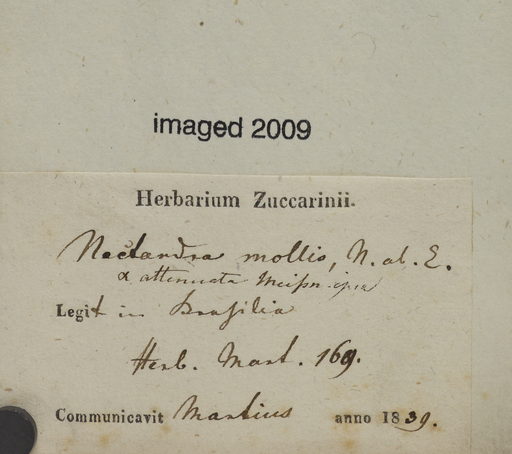 imaged 2009
Herbarium Zuccarinii.
Nectandra mollis, N. ab. E.
α attenuata Meissn. ipse
Legit in Brasilia
Herb. Mart. 169.
Communicavit Martius anno 1839.